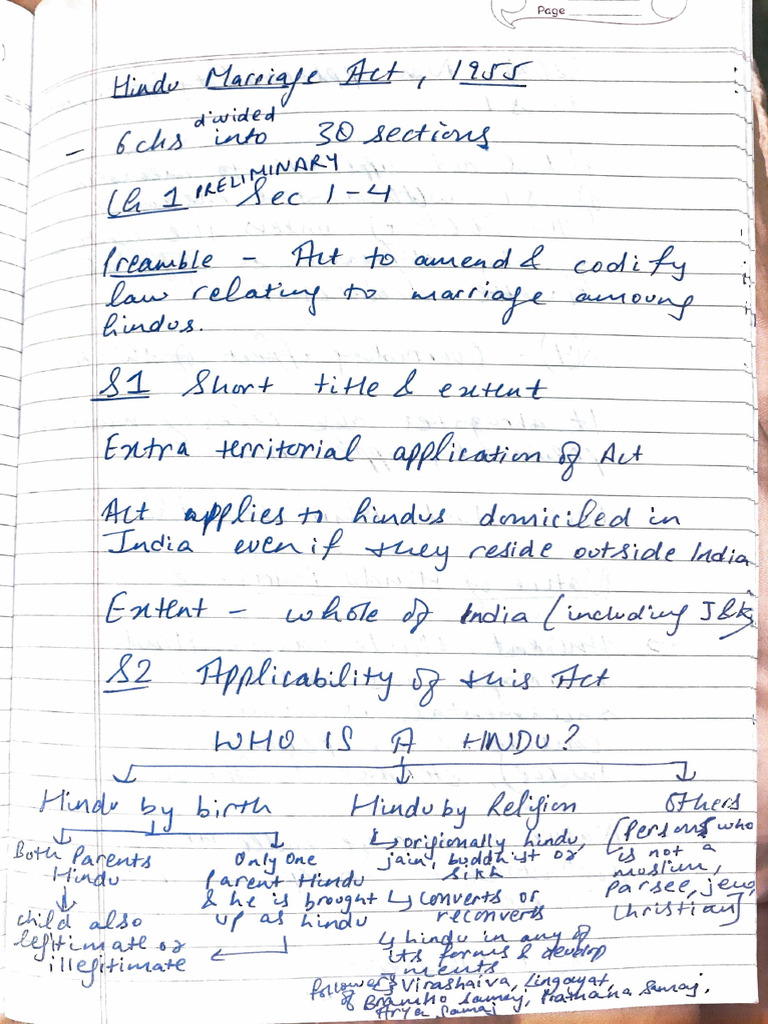 Page
Hindu Marriage Act, 1955
- 6 chs divided into 30 sections
Ch 1 PRELIMINARY Sec 1-4
Preamble - Act to amend & codify
law relating to marriage amoung
hindus.
S1 Short title & extent
Extra territorial application of Act
Act applies to hindus domiciled in
India even if they reside outside India
Extent - whole of India (including J&K)
S2 Applicability of this Act
WHO IS A HINDU?
Hindu by birth
Both Parents
Hindu
child also
legitimate or
illegitimate
Only one
parent Hindu
& he is brought
up as hindu
Hindu by Religion
↳ origionally hindu,
jain, buddhist or
sikh
↳ converts or
reconverts
↳ hindu in any of
its forms & develop
ments
followers of Virashaiva, Lingayat,
Bramho Samaj, Prathana Samaj,
Arya Samaj
Others
[Persons who
is not a
muslim,
parsee, jew,
christian]